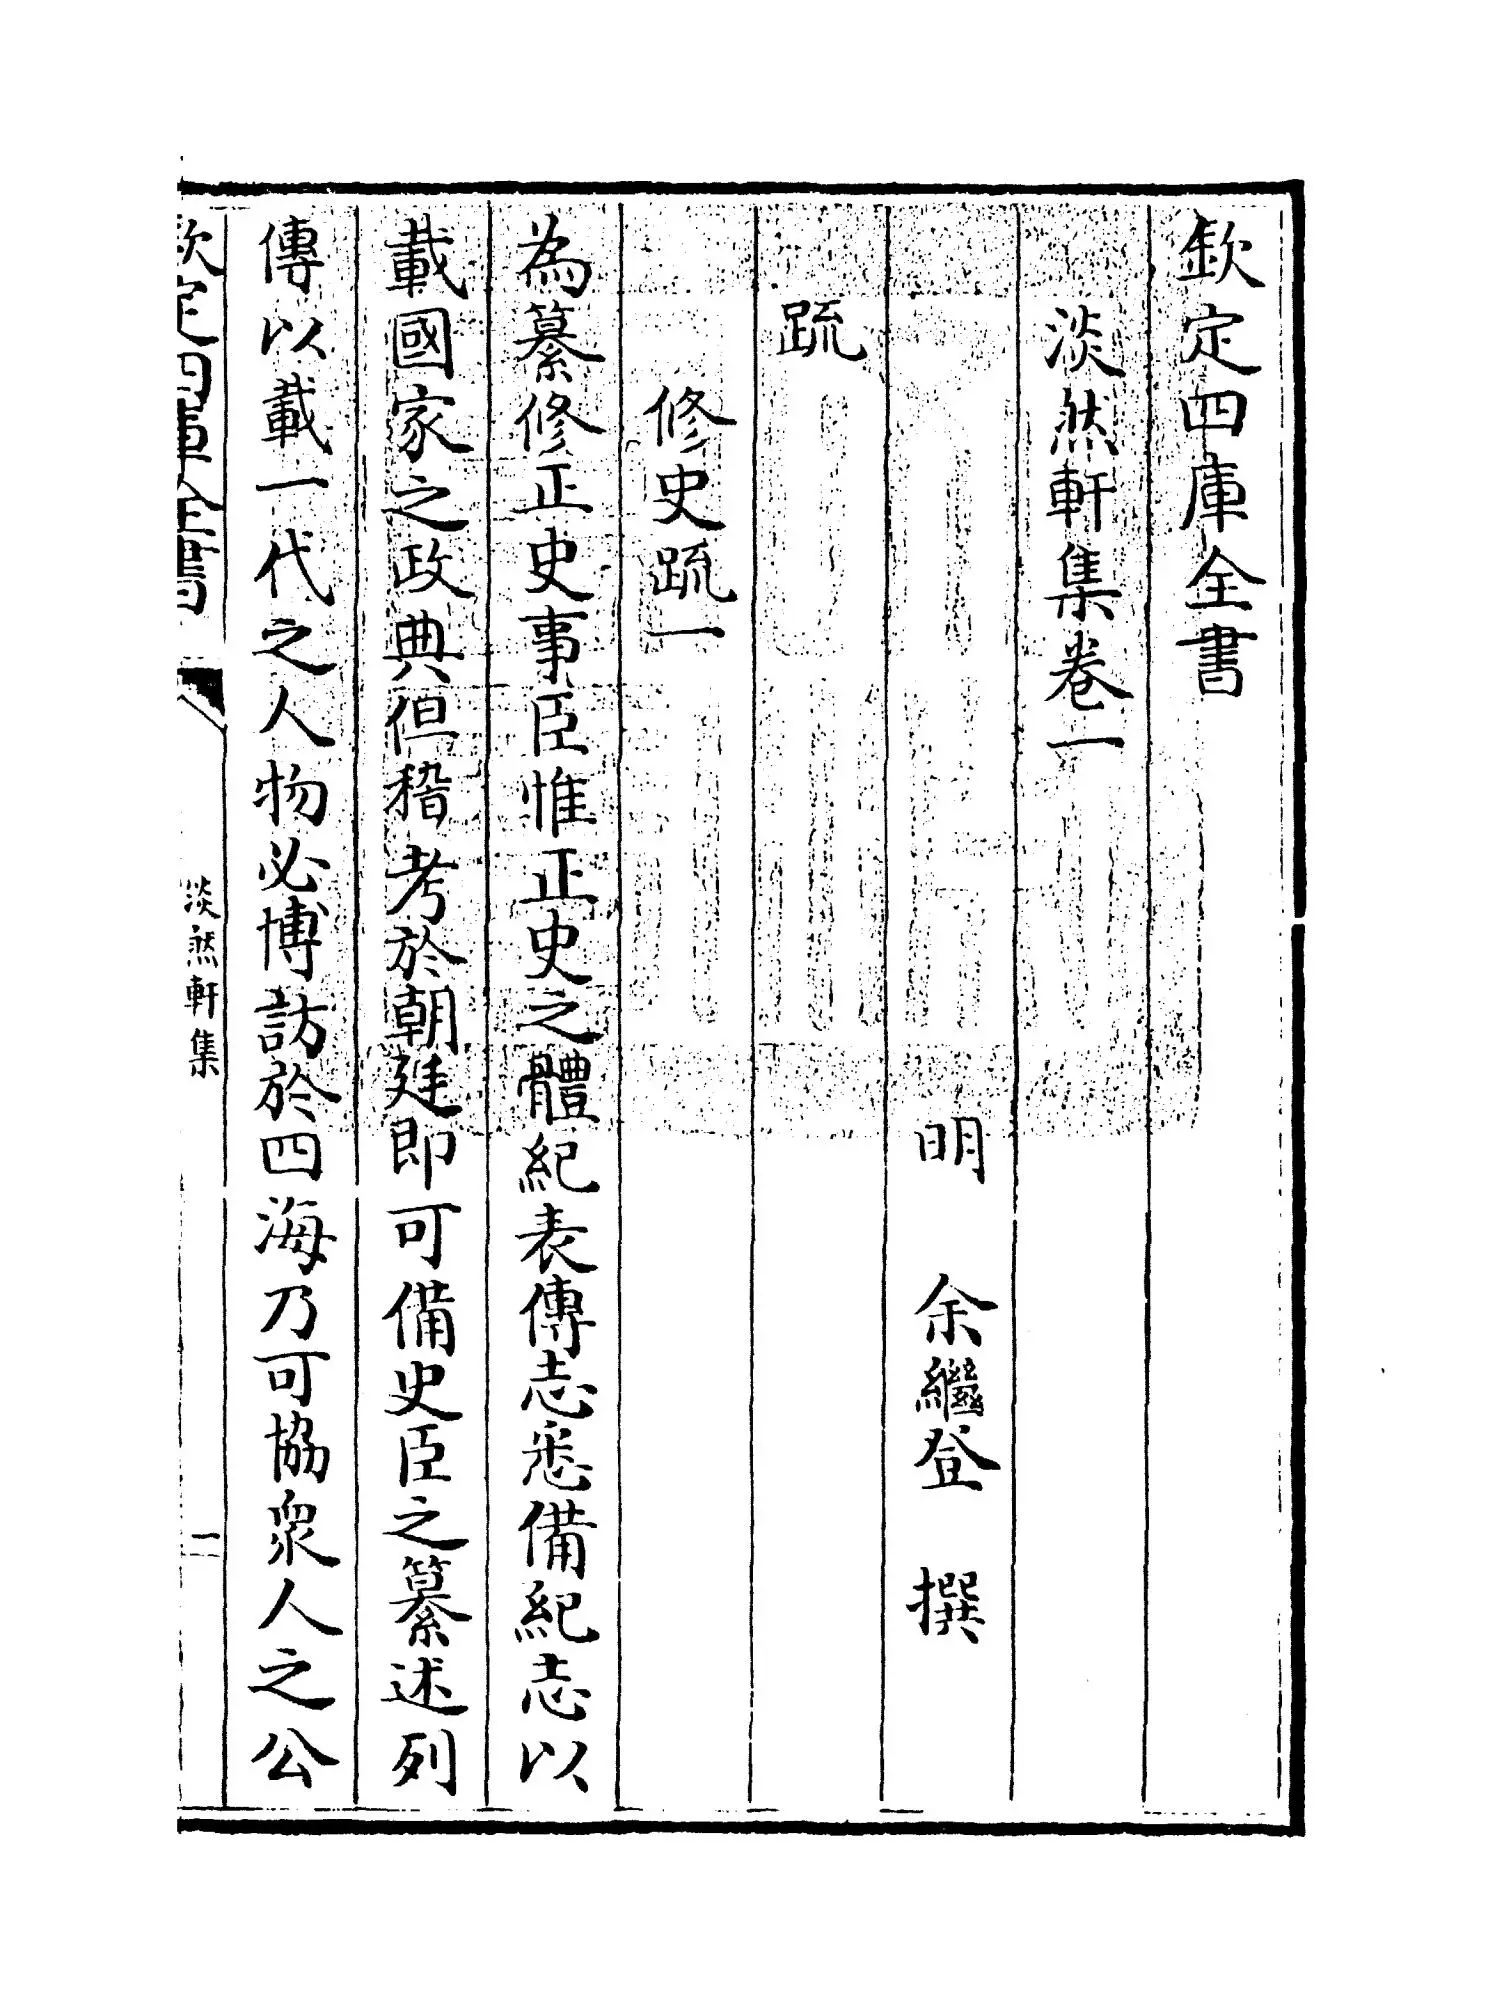 欽定四庫全書
淡然軒集卷一
明 余繼登 撰
疏
修史疏一
為纂修正史事臣惟正史之體紀表傳志悉備紀志以
載國家之政典但稽考於朝廷即可備史臣之纂述列
傳以載一代之人物必博訪於四海乃可協衆人之公
欽定四庫全書
淡然軒集
一